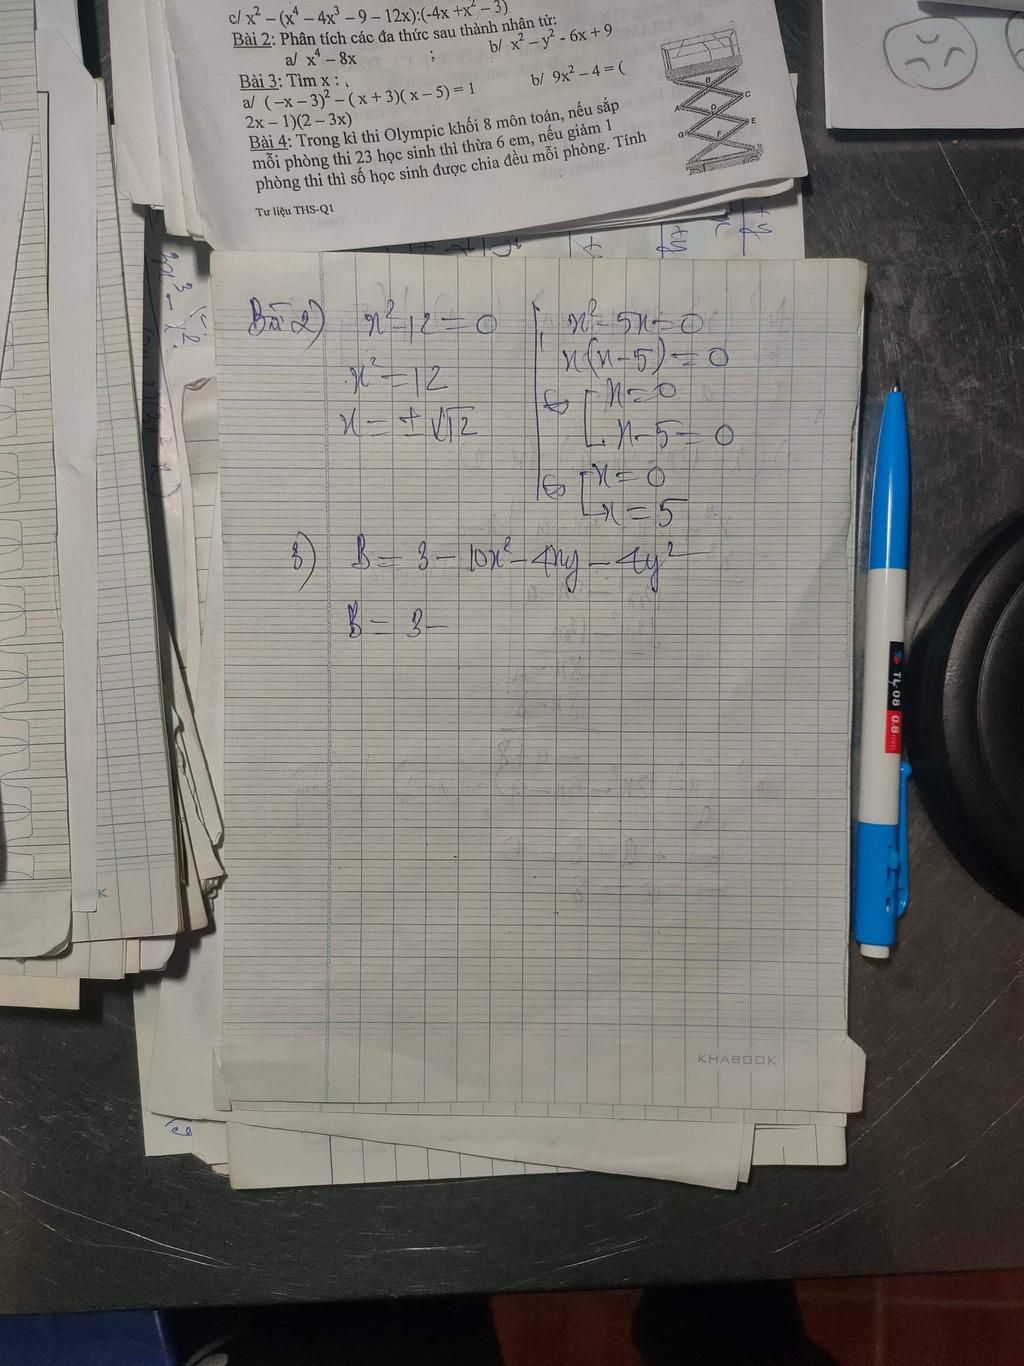 c/ x² – (x⁴ – 4x³ – 9 – 12x):(-4x +x² – 3)
Bài 2: Phân tích các đa thức sau thành nhân tử:
a/ x⁴ – 8x ; b/ x² – y² - 6x + 9
Bài 3: Tìm x :
a/ (–x – 3)² – ( x + 3)( x – 5) = 1 b/ 9x² – 4 = (
2x – 1)(2 – 3x)
Bài 4: Trong kì thi Olympic khối 8 môn toán, nếu sắp
mỗi phòng thi 23 học sinh thì thừa 6 em, nếu giảm 1
phòng thi thì số học sinh được chia đều mỗi phòng. Tính
Tư liệu THS-Q1
B
C
A
D
E
G
F
Bài 2) x² - 12 = 0
x² = 12
x = ± √12
x² - 5x = 0
x(x - 5) = 0
⇔ [ x = 0
x - 5 = 0
⇔ [ x = 0
x = 5
3) B = 3 - 10x² - 4xy - 4y²
B = 3 -
KHABOOK
TL-08
0.8mm